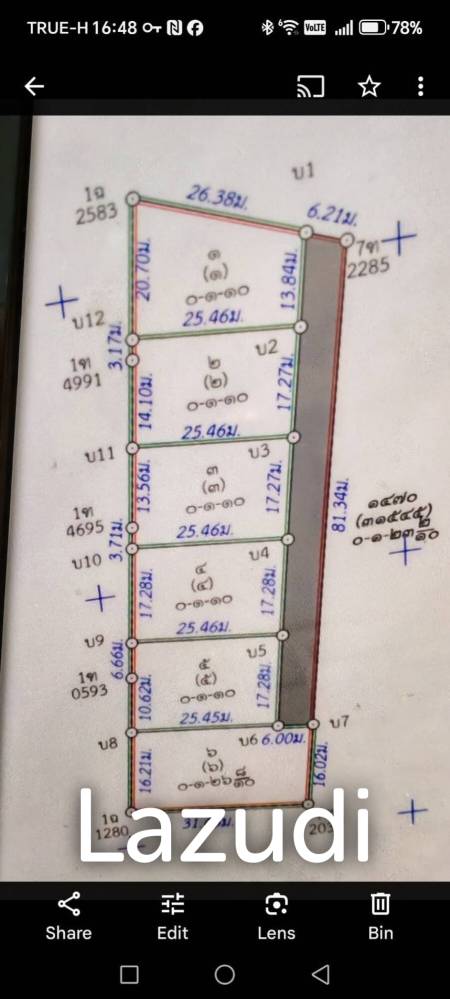 TRUE-H 16:48
VoLTE
78%
บ1
1ฉ
2583
26.38ม.
6.21ม.
7ฑ
2285
20.70ม.
๑
(๑)
๐-๑-๑๐
13.84ม.
25.46ม.
บ12
3.17ม.
1ฑ
4991
บ2
๒
(๒)
๐-๑-๑๐
17.27ม.
14.10ม.
25.46ม.
บ11
บ3
13.56ม.
๓
(๓)
๐-๑-๑๐
17.27ม.
81.34ม.
1ฑ
4695
3.71ม.
25.46ม.
บ10
บ4
๑๔๗๐
๔
(๔)
๐-๑-๑๐
17.28ม.
17.28ม.
25.46ม.
บ9
บ5
6.66ม.
1ฑ
0593
๕
(๕)
๐-๑-๑๐
17.28ม.
10.62ม.
25.45ม.
บ8
บ6
6.00ม.
บ7
16.21ม.
๖
(๖)
๐-๑-๒๖ ๘/๑๐
16.02ม.
1ฉ
1280
Lazudi
Share
Edit
Lens
Bin